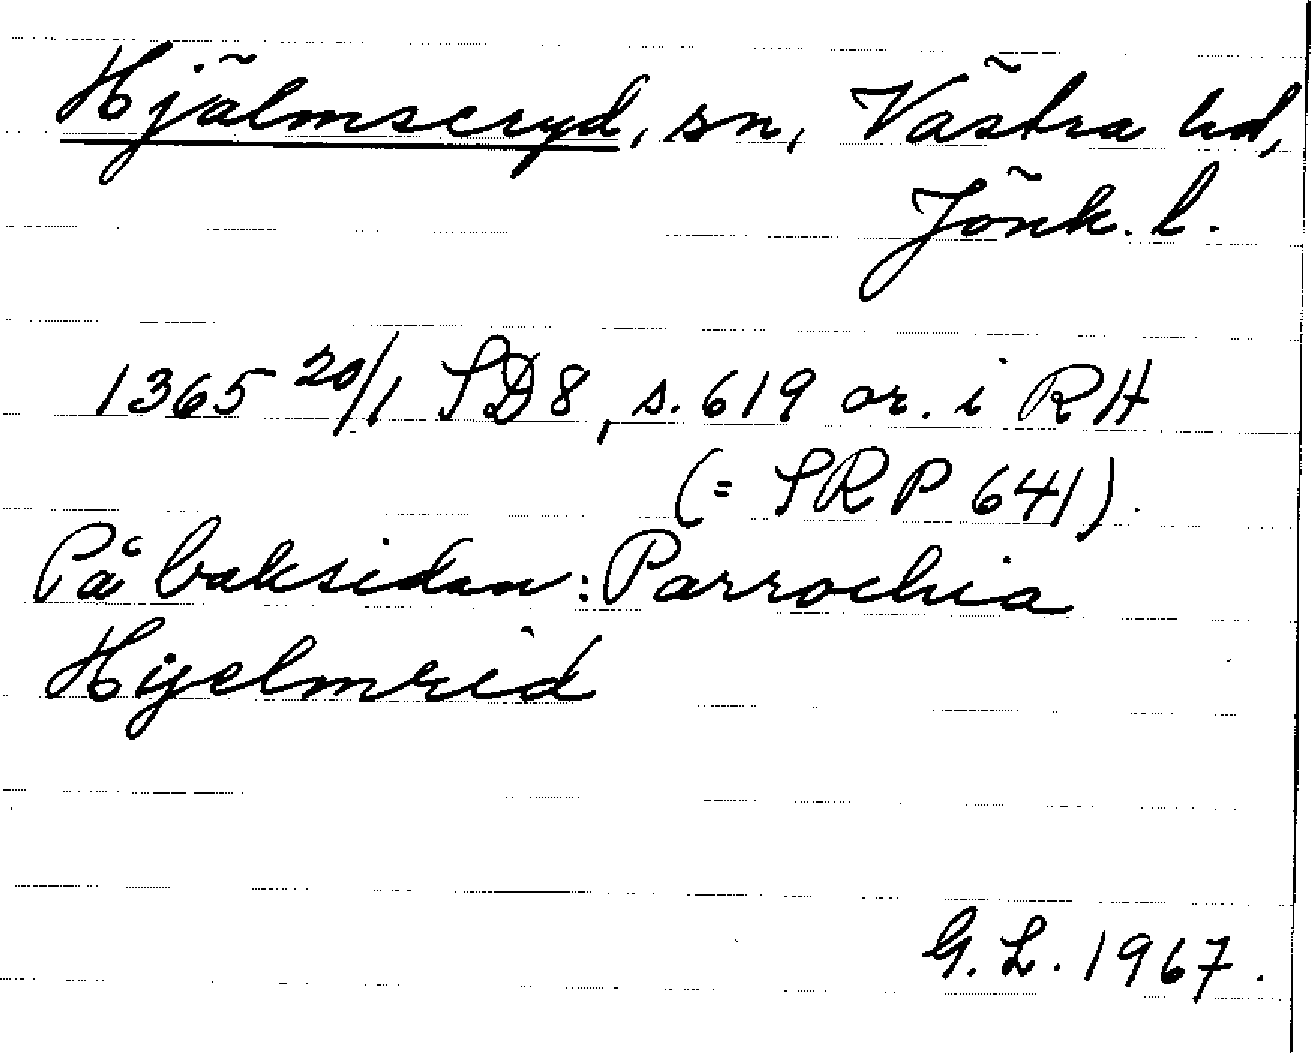 Hjälmseryd, sn, Västra hd,
Jönk. l.
1365 20/1 SD8, s. 619 or. i RH
(= SRP 641).
På baksidan: Parrochia
Hyelmrid
G. L. 1967.